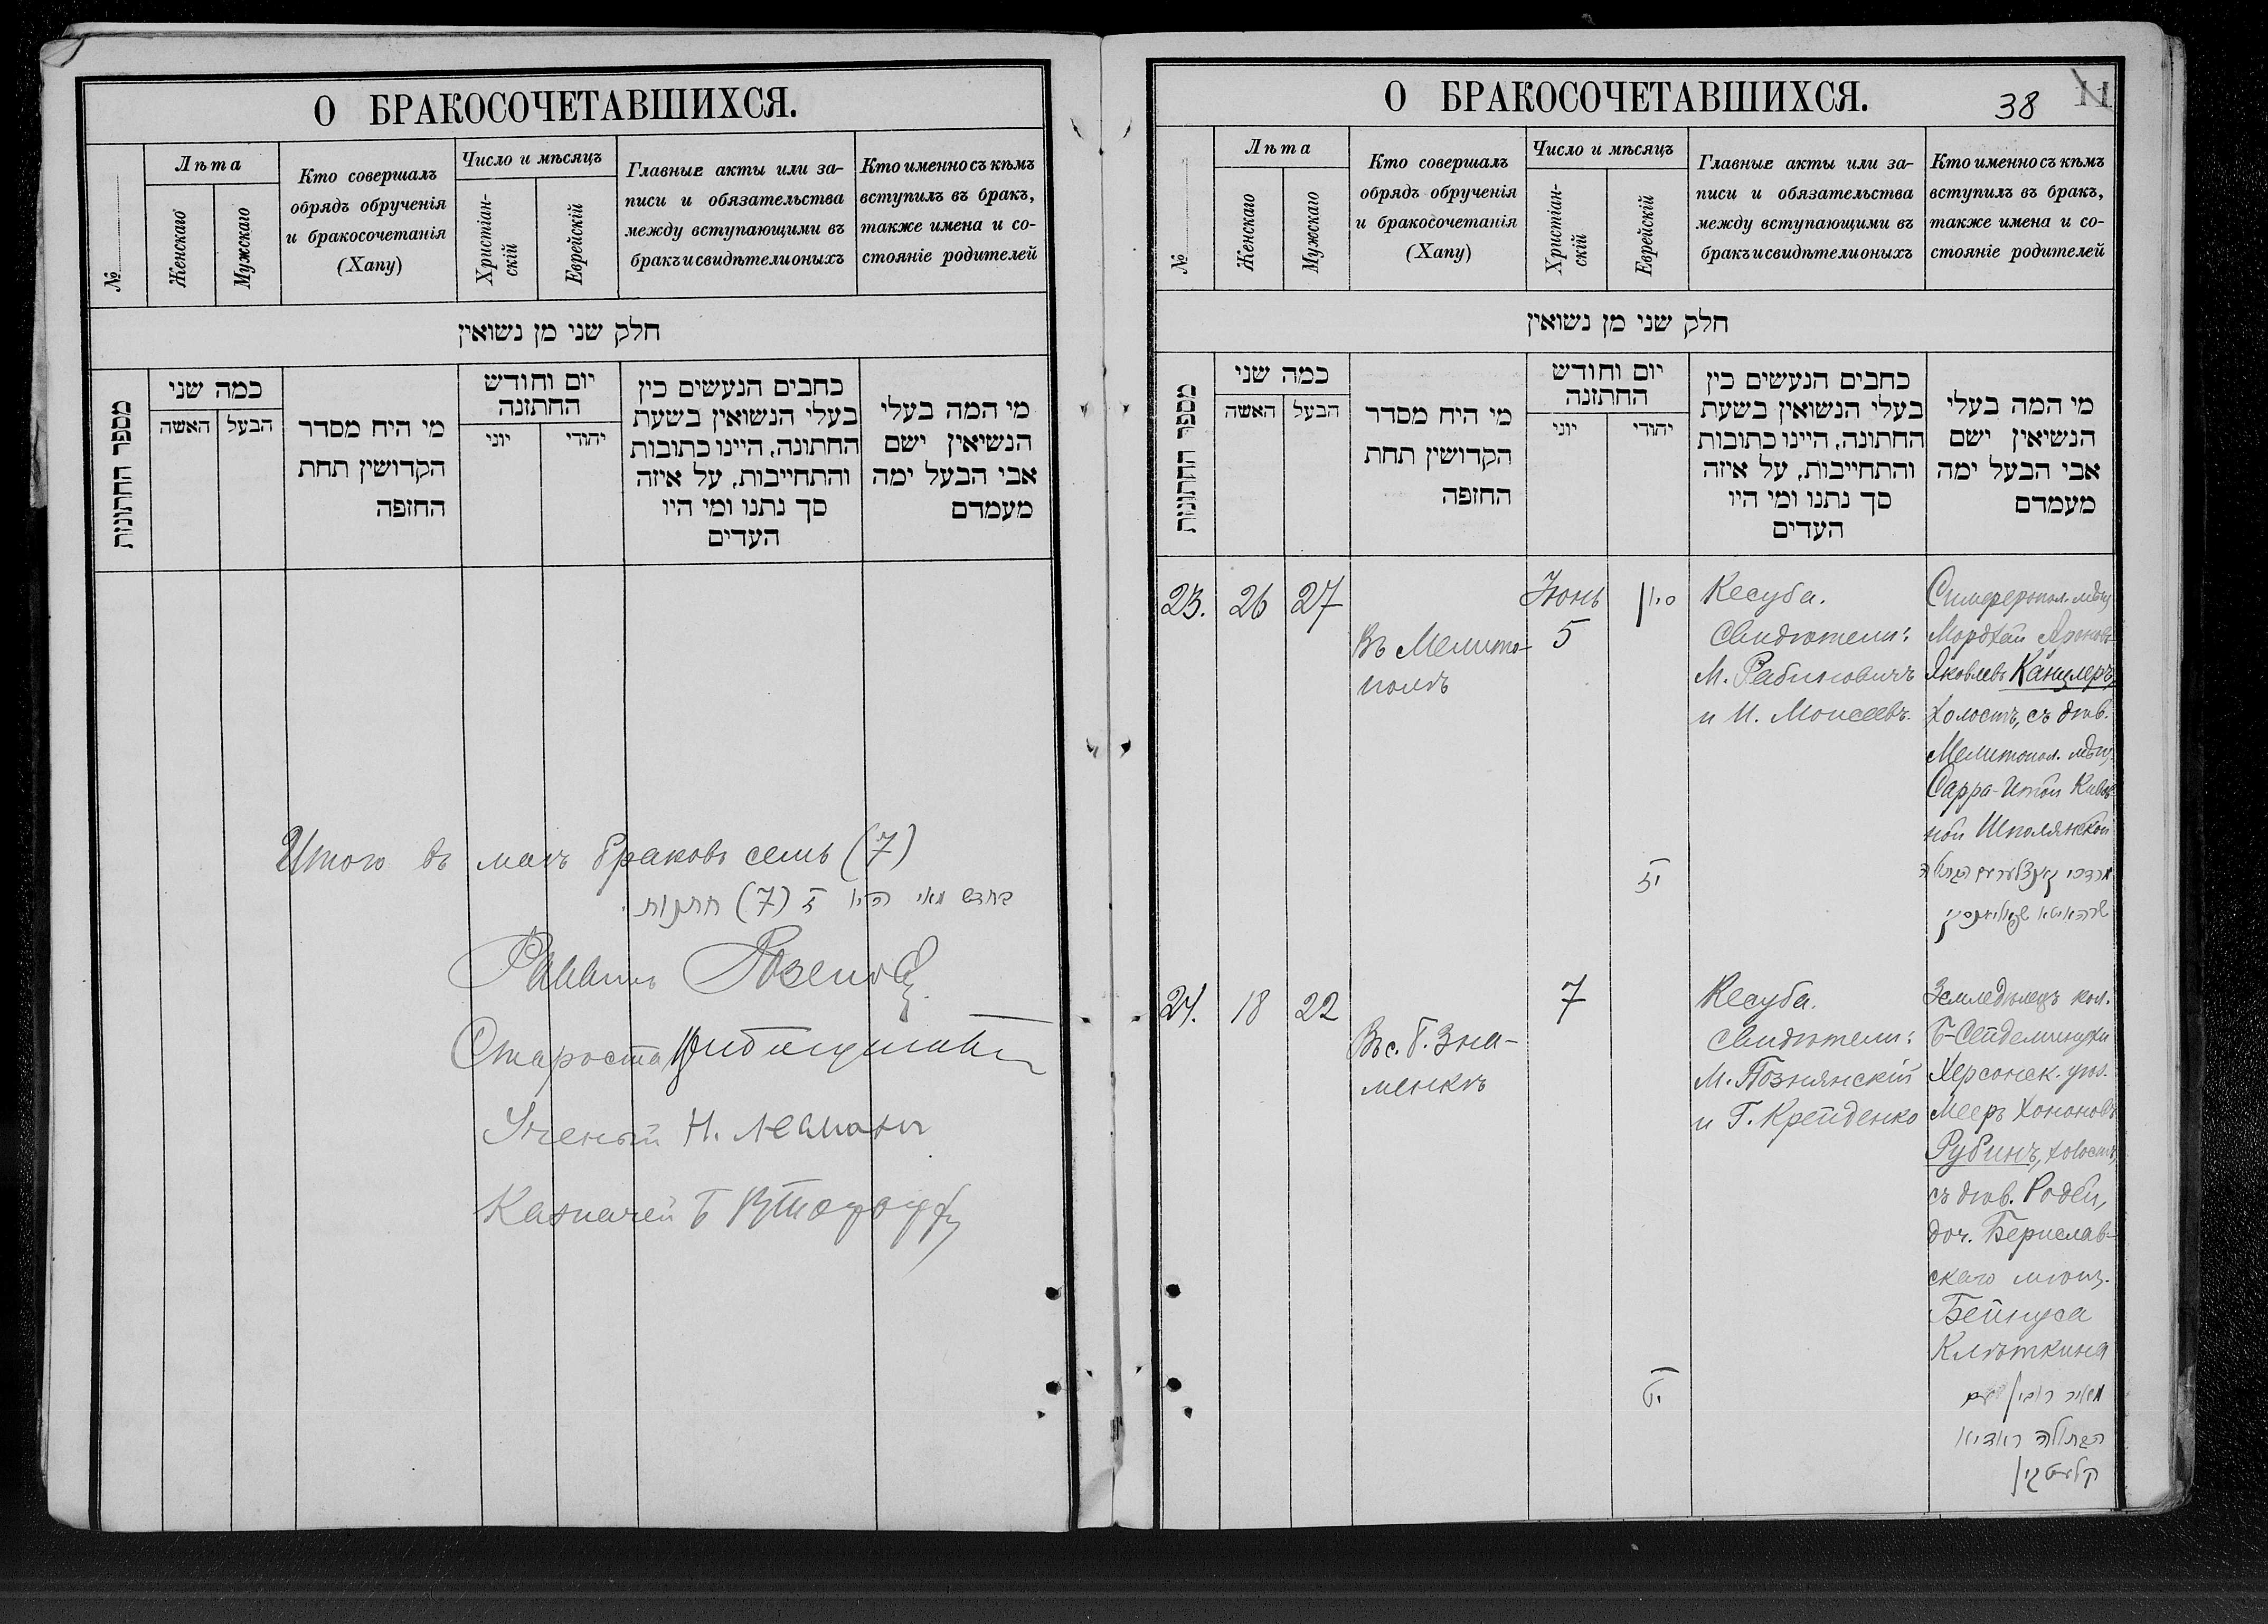 О БРАКОСОЧЕТАВШИХСЯ.
№
Лѣта
Женскаго
Мужскаго
Кто совершалъ
обрядъ обрученія
и бракосочетанія
(Хапу)
Число и мѣсяцъ
Христіан-
скій
Еврейскій
Главные акты или за-
писи и обязательства
между вступающими въ
бракъ и свидѣтели оныхъ
Кто именно съ кѣмъ
вступилъ въ бракъ,
также имена и со-
стояніе родителей
חלק שני מן נשואין
מספר החתונות
כמה שני
האשה
הבעל
מי היח מסדר
הקדושין תחת
החזפה
יום וחודש
החתזנה
יוני
יהודי
כחבים הנעשים כין
בעלי הנשואין בשעת
החתונה, היינו כתובות
והתחייבות, על איזה
סך נתנו ומי היו
העדים
מי המה בעלי
הנשיאין ישם
אבי הבעל ימה
מעמדם
Итого въ маѣ браковъ семь (7)
בחדש מאי היו ז (7) חתנות
Раввинъ
Староста
Ученый Н. Леман
Казначей Б
О БРАКОСОЧЕТАВШИХСЯ.
38
11
№
Лѣта
Женскаго
Мужскаго
Кто совершалъ
обрядъ обрученія
и бракосочетанія
(Хапу)
Число и мѣсяцъ
Христіан-
скій
Еврейскій
Главные акты или за-
писи и обязательства
между вступающими въ
бракъ и свидѣтели оныхъ
Кто именно съ кѣмъ
вступилъ въ бракъ,
также имена и со-
стояніе родителей
חלק שני מן נשואין
מספר החתונות
כמה שני
האשה
הבעל
מי היח מסדר
הקדושין תחת
החזפה
יום וחודש
החתזנה
יוני
יהודי
כחבים הנעשים כין
בעלי הנשואין בשעת
החתונה, היינו כתובות
והתחייבות, על איזה
סך נתנו ומי היו
העדים
מי המה בעלי
הנשיאין ישם
אבי הבעל ימה
מעמדם
23.
26
27
Въ Мелито-
полѣ
Іюнь
5
סיון
יז
Кесуба.
Свидѣтели:
М. Рабиновичъ
и И. Моисеевъ.
Симферопол. мѣщ.
Мордхай Ароновъ
Яковлевъ Канцлеръ,
холостъ, съ дѣв.
Мелитопол. мѣщ.
Сарра-Итой Кивов-
ной Шполянской
מרדכי קאנצלער עם הבתולה
שרה איטא שפאליאנסקי
24.
18
22
Въ с. Б. Зна-
менкѣ
7
יט
Кесуба.
Свидѣтели:
М. Познянскій
и Г. Крейденко
Земледѣлецъ кол.
Б-Сейдеминухи
Херсонск. уѣз.
Мееръ Хононовъ
Рубинъ, холостъ,
съ дѣв. Родей,
доч. Берислав-
скаго мѣщ.
Бейнуса
Клѣткина
מאיר רובין עם
הבתולה ראדיא
קלעטקין